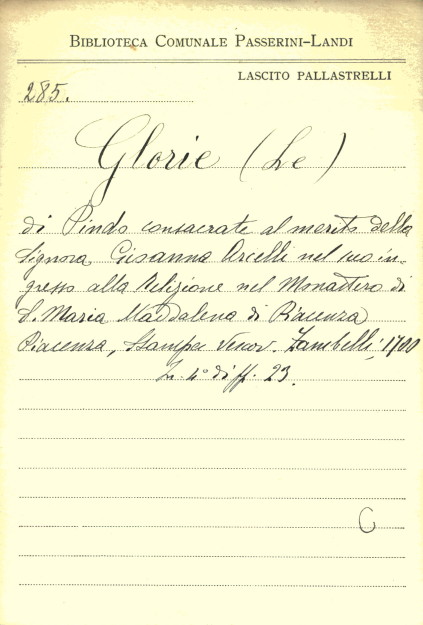 BIBLIOTECA COMUNALE PASSERINI-LANDI
LASCITO PALLASTRELLI
285.
Glorie (Le)
di Pindo consacrate al merito della
Signora Gisanna Arcelli nel suo in-
gresso alla Religione nel Monastero di
S. Maria Maddalena di Piacenza
Piacenza, Stampa Vescov. Zambelli, 1700
In 4° di ff. 23.
C